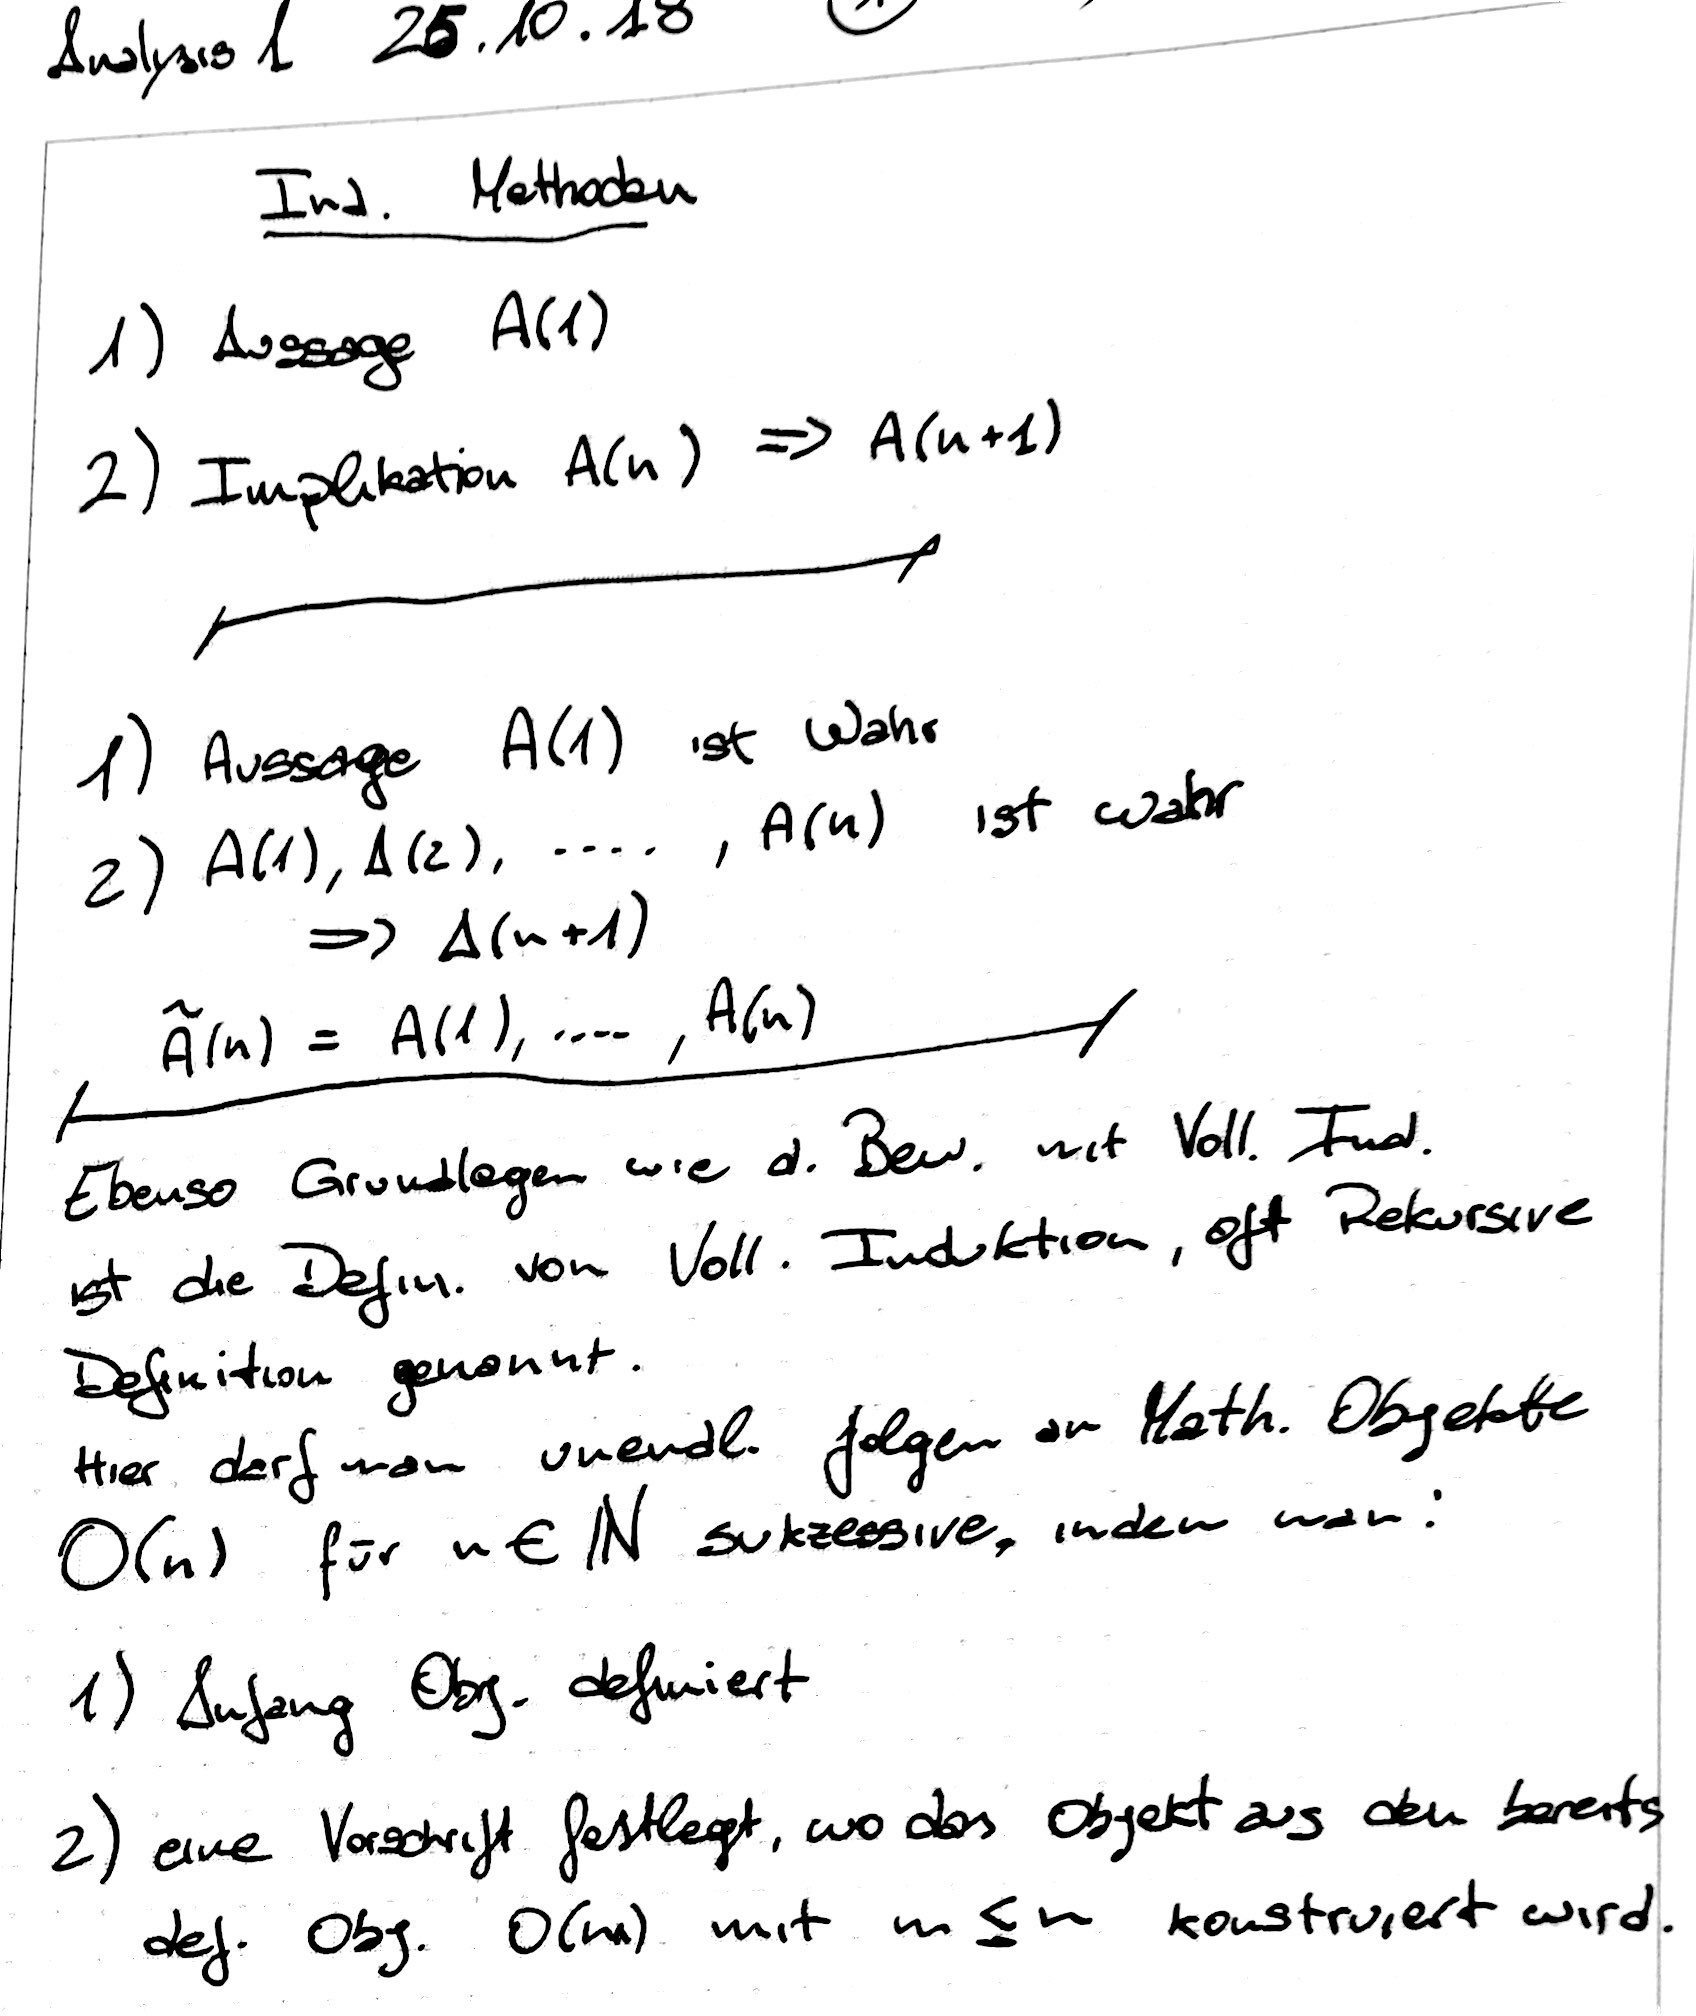 Analysis 1 25.10.18 1
Ind. Methoden
1) Aussage A(1)
2) Implikation A(n) => A(n+1)
1) Aussage A(1) ist Wahr
2) A(1), A(2), ...., A(n) ist wahr
=> A(n+1)
Ã(n) = A(1), ...., A(n)
Ebenso Grundlegen wie d. Bew. mit Voll. Ind.
ist die Defin. von Voll. Induktion, oft Rekursive
Definition genannt.
Hier darf man unendl. folgen an Math. Objekte
O(n) für n ∈ ℕ sukzessive, indem man:
1) Anfang Obj. definiert
2) eine Vorschrift festlegt, wo das Objekt aus den bereits
def. Obj. O(m) mit m ≤ n konstruiert wird.